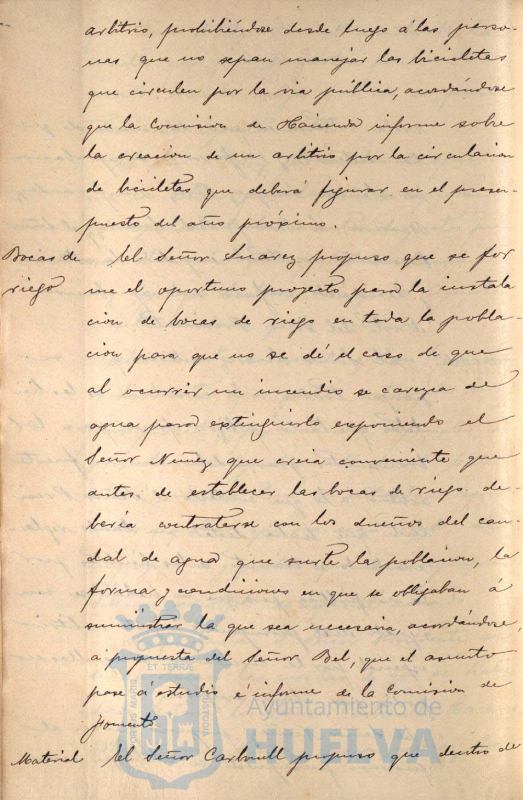 arbitrio, prohibiéndose desde luego á las perso-
nas que no sepan manejar las bicicletas
que circulen por la via pública, acordándose
que la Comision de Hacienda informe sobre
la creacion de un arbitrio por la circulacion
de bicicletas que deberá figurar en el presu-
puesto del año próximo.
Bocas de riego
El Señor Suarez propuso que se for
me el oportuno proyecto para la instala
cion de bocas de riego en toda la pobla-
cion para que no se dé el caso de que
al ocurrir un incendio se carezca de
agua para extinguirlo exponiendo el
Señor Nuñez que creia conveniente que
antes de establecer las bocas de riego de-
bería contratarse con los dueños del cau-
dal de agua que surte la poblacion, la
forma y condiciones en que se obligaban á
suministrar la que sea necesaria, acordándose,
a propuesta del Señor Bel, que el asunto
pase á estudio é informe de la Comision de
Fomento
Material
El Señor Carbonell propuso que dentro de
Ayuntamiento de
HUELVA